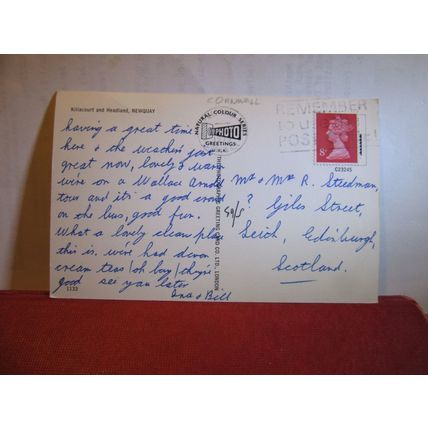 Killacourt and Headland, NEWQUAY
CORNWALL
having a great time
here & the weather just
great now, lovely & warm
we're on a Wallace Arnold
tour and it's a good crowd
on the bus, good fun.
What a lovely clean place
this is, we've had devon
cream teas (oh boy) they're
good see you later
Ina & Bill
1133
NATURAL COLOUR SERIES
PHOTO
GREETINGS
THE PHOTOGRAPHIC GREETING CARD CO. LTD., LONDON
REMEMBER
TO USE
POST
8
C23245
Mr & Mrs R. Steedman,
? Giles Street,
Leith, Edinburgh,
Scotland.